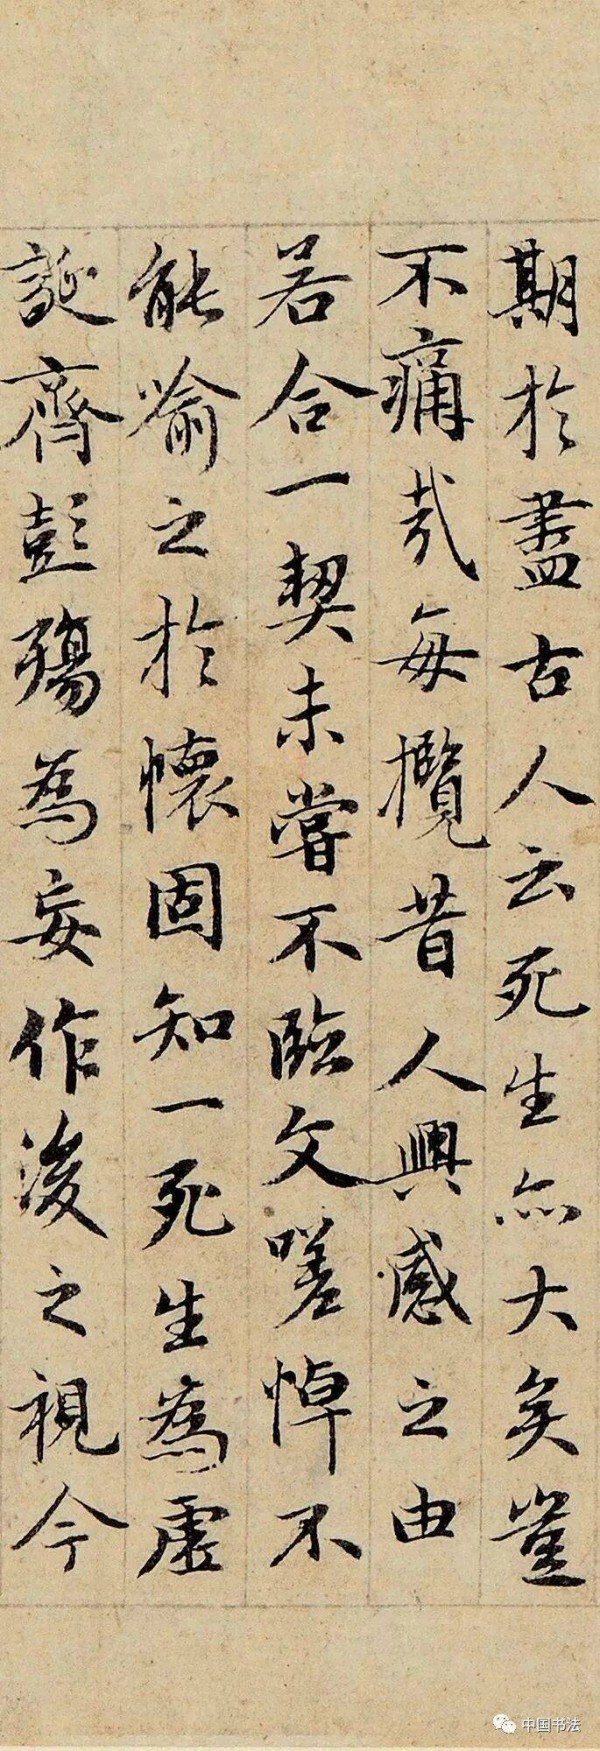 期於盡古人云死生亦大矣豈
不痛哉每攬昔人興感之由
若合一契未嘗不臨文嗟悼不
能喻之於懷固知一死生為虛
誕齊彭殤為妄作後之視今
中国书法